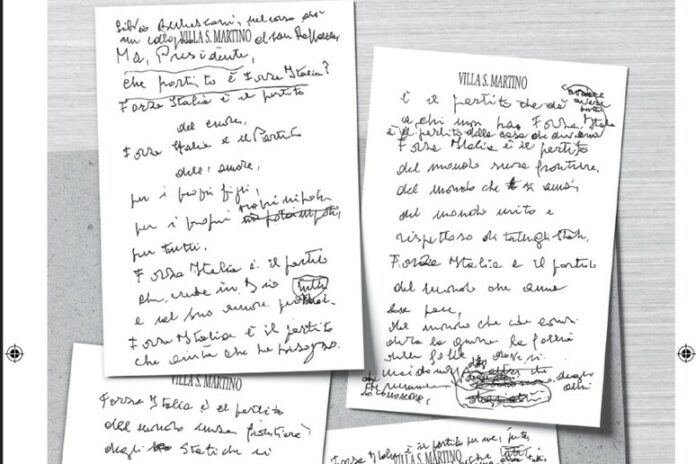 Silvio Berlusconi, nel corso di
un colloquio al San Raffaele
VILLA S. MARTINO
Ma, Presidente,
che partito è Forza Italia?
Forza Italia è il partito
del cuore,
Forza Italia è il Partito
dell'amore,
per i propri figli,
per i propri nipoti,
per tutti.
Forza Italia è il partito
che crede in Dio
e nel suo amore per
Forza Italia è il partito
che aiuta chi ne ha bisogno.
VILLA S. MARTINO
è il partito che dà
a chi non ha Forza Italia
è il partito della casa
Forza Italia è il partito
del mondo senza frontiere,
del mondo che si ama,
del mondo unito e
rispettoso di tutti gli Stati,
Forza Italia è il partito
del mondo che ama
la pace,
del mondo che considera
la guerra la follia
delle follie, dove si
degli
altri
VILLA S. MARTINO
Forza Italia è il partito
del mondo senza frontiere
degli Stati che si
VILLA S. MARTINO
Forza Italia è il partito per me,